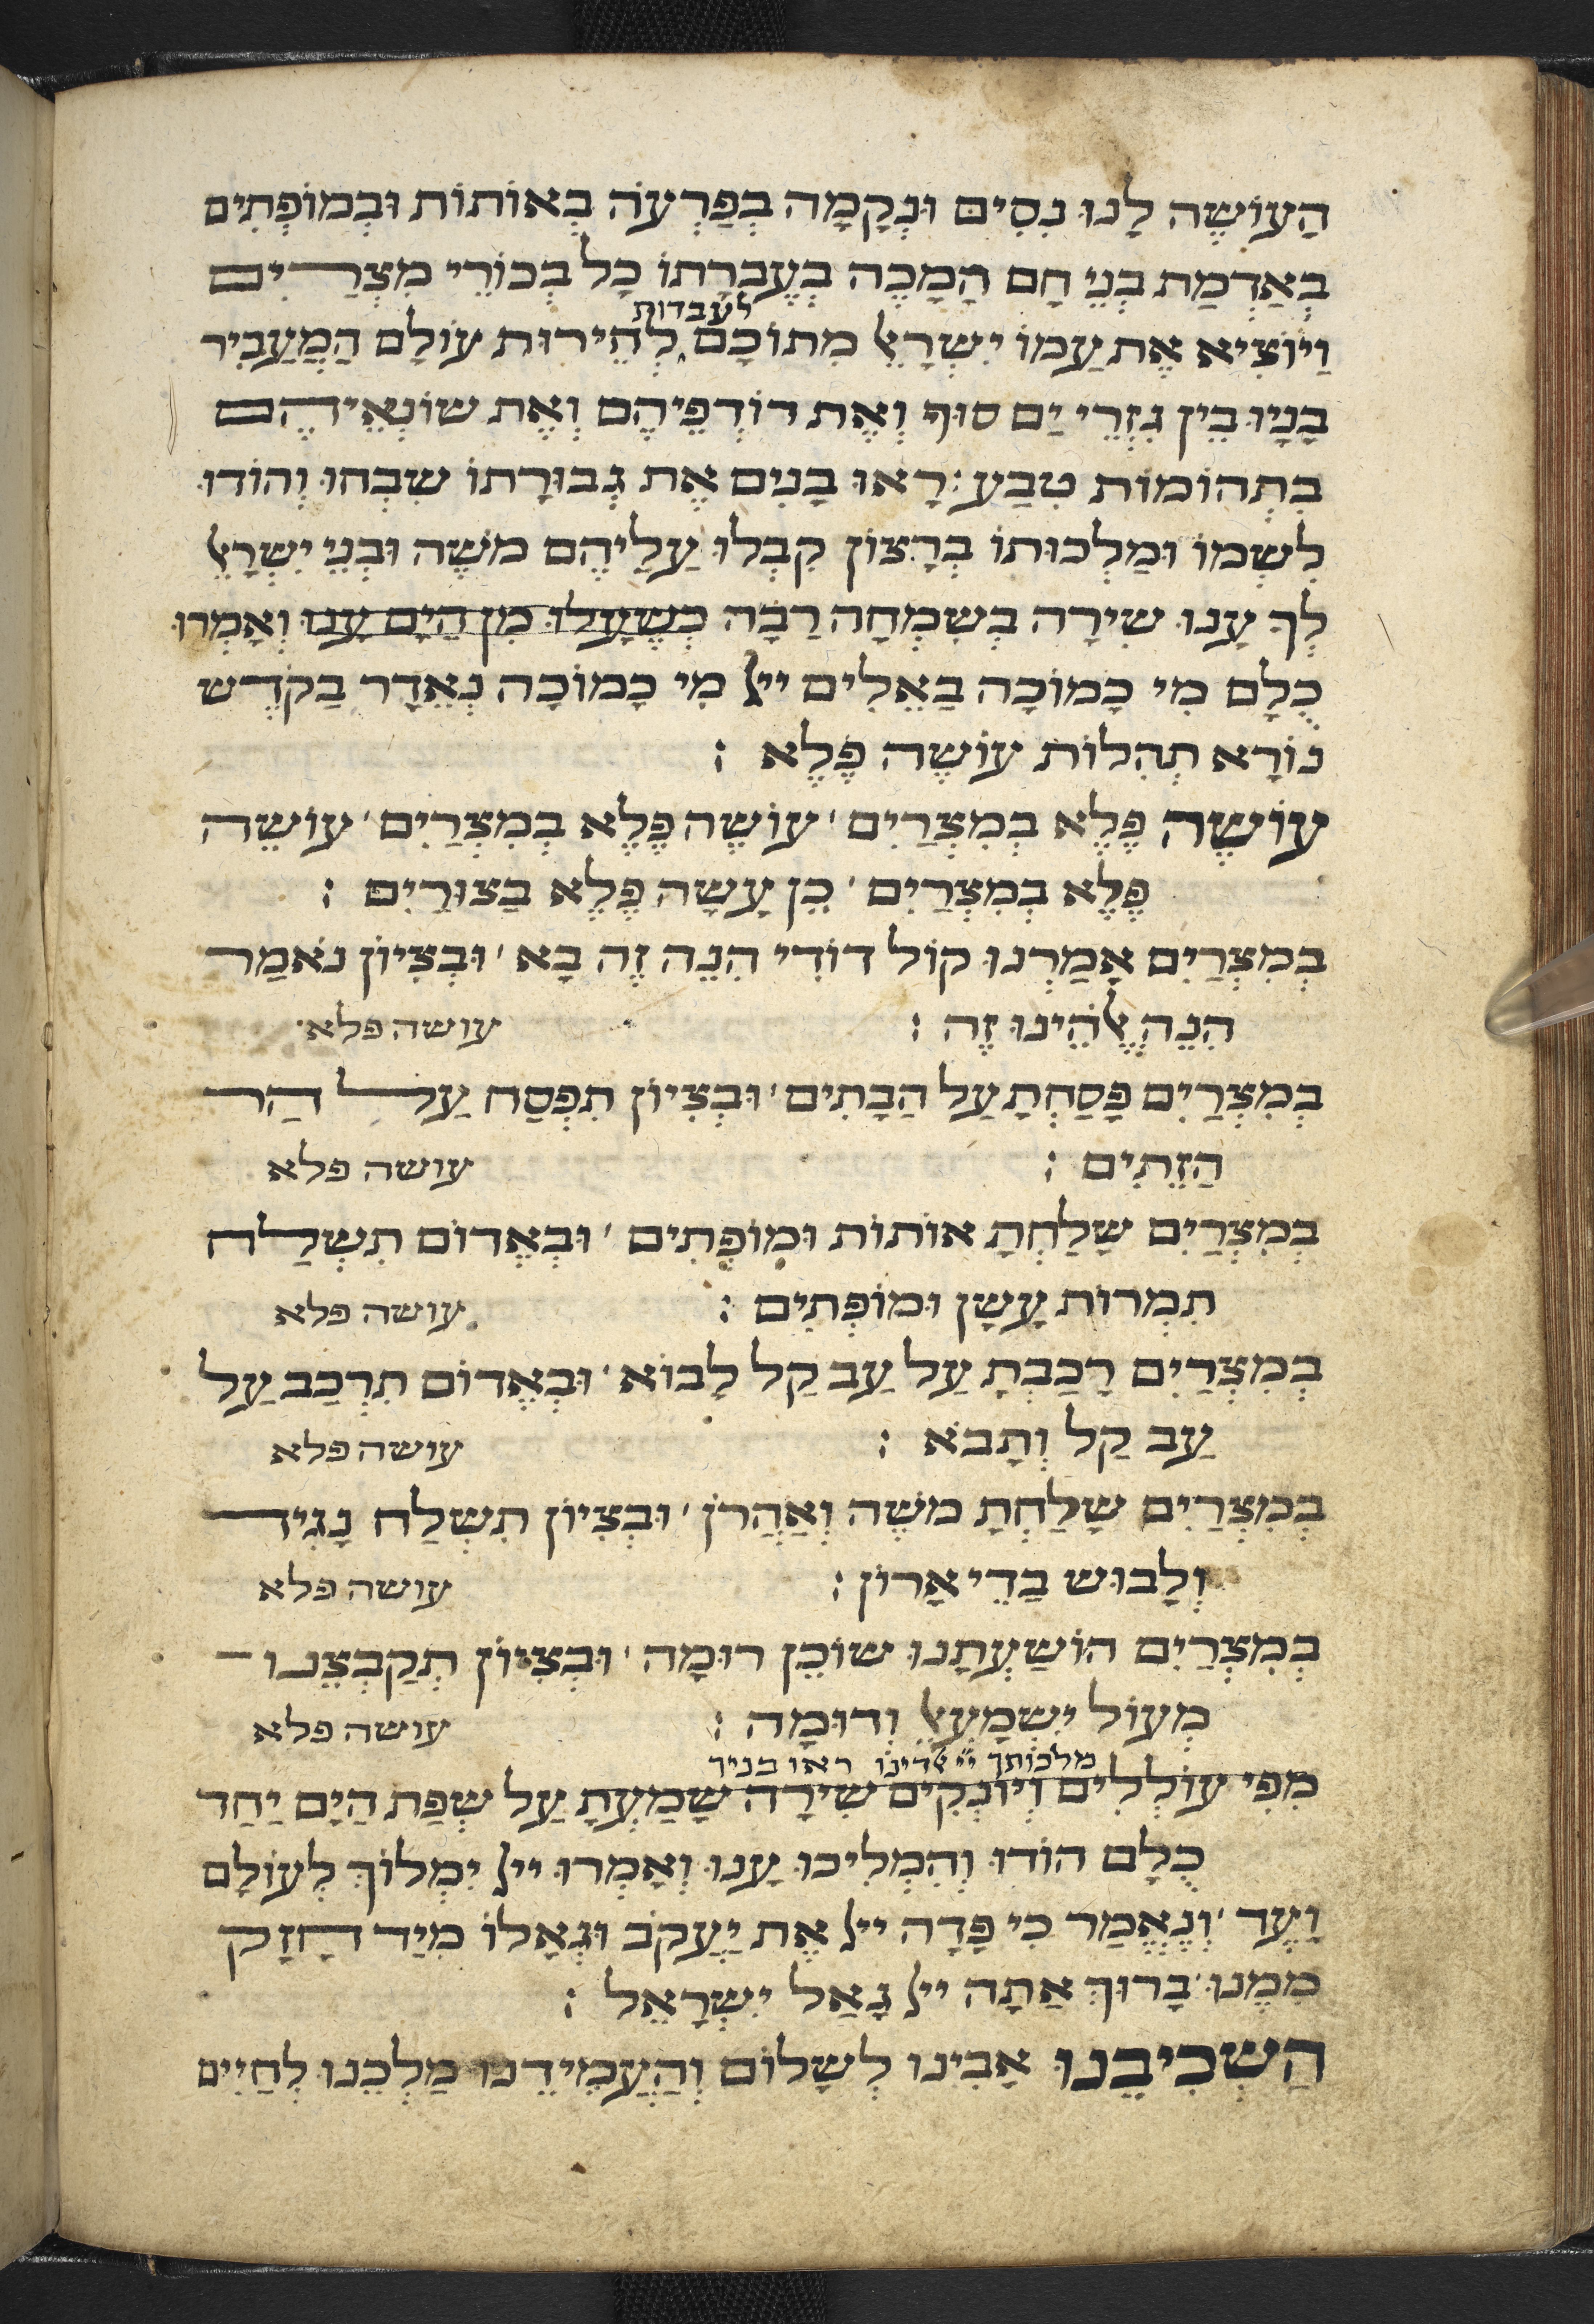 הָעוֹשֶׂה לָנוּ נִסִים וּנְקָמָה בְפַרְעֹה בְאוֹתוֹת וּבְמוֹפְתִים
בְאַדְמַת בְנֵי חָם הַמַכֶה בְעֶבְרָתוֹ כָל בְכוֹרֵי מִצְרַיִם
לעבדות
וַיוֹצִיא אֶת עַמוֹ יִשְרָאֵל מִתוֹכָם לְחֵירוּת עוֹלָם הַמַעֲבִיר
בָנָיו בֵין גִזְרֵי יַם סוּף וְאֶת רוֹדְפֵיהֶם וְאֶת שׂוֹנְאֵיהֶם
בִתְהוֹמוֹת טִבַע: רָאוּ בָנִים אֶת גְבוּרָתוֹ שִבְחוּ וְהוֹדוּ
לִשְמוֹ וּמַלְכוּתוֹ בְרָצוֹן קִבְלוּ עֲלֵיהֶם משֶה וּבְנֵי יִשְרָאֵל
לְךָ עָנוּ שִירָה בְשִמְחָה רַבָה כְשֶעָלוּ מִן הַיָם עָנוּ וְאָמְרוּ
כֻלָם מִי כָמוֹכָה בָאֵלִים ייי מִי כָמוֹכָה נֶאְדָר בַקֹדֶש
נוֹרָא תְהִלוֹת עוֹשֶה פֶלֶא :
עוֹשֶה פֶלֶא בְמִצְרַיִם ׳ עוֹשֶה פֶלֶא בְמִצְרַיִם ׳ עוֹשֶה
פֶלֶא בְמִצְרַיִם ׳ כֵן עָשָה פֶלֶא בַצוּרִים :
בְמִצְרַיִם אָמַרְנוּ קוֹל דוֹדִי הִנֵה זֶה בָא ׳ וּבְצִיוֹן נֹאמַר
הִנֵה אֱלֹהֵינוּ זֶה : עושה פלא
בְמִצְרַיִם פָסַחְתָ עַל הַבָתִים ׳ וּבְצִיוֹן תִפְסַח עַל הַר
הַזֵתִים : עושה פלא
בְמִצְרַיִם שָלַחְתָ אוֹתוֹת וּמוֹפְתִים ׳ וּבְאֱדוֹם תִשְלַח
תִמְרוֹת עָשָן וּמוֹפְתִים : עושה פלא
בְמִצְרַיִם רָכַבְתָ עַל עַב קַל לָבוֹא ׳ וּבְאֱדוֹם תִרְכַב עַל
עַב קַל וְתָבֹא : עושה פלא
בְמִצְרַיִם שָלַחְתָ משֶה וְאַהֲרֹן ׳ וּבְצִיוֹן תִשְלַח נָגִיד
וְלָבוּש בַדֵי אָרוֹן : עושה פלא
בְמִצְרַיִם הוֹשַעְתָנוּ שוֹכֵן רוּמָה ׳ וּבְצִיוֹן תְקַבְצֵנוּ
מְעוֹל יִשְמָעֵאל וְדוּמָה : עושה פלא
מלכותך ראו בניך
מִפִי עוֹלְלִים וְיוֹנְקִים שִירָה שָמַעְתָ עַל שְפַת הַיָם יַחַד
כֻלָם הוֹדוּ וְהִמְלִיכוּ עָנוּ וְאָמְרוּ ייי יִמְלוֹךְ לְעוֹלָם
וָעֶד ׳ וְנֶאֱמַר כִי פָדָה ייי אֶת יַעֲקֹב וּגְאָלוֹ מִיַד חָזָק
מִמֶנוּ ׳ בָרוּךְ אַתָה ייי גָאַל יִשְרָאֵל :
הַשְכִיבֵנוּ אָבִינוּ לְשָלוֹם וְהַעֲמִידֵנוּ מַלְכֵנוּ לְחַיִים